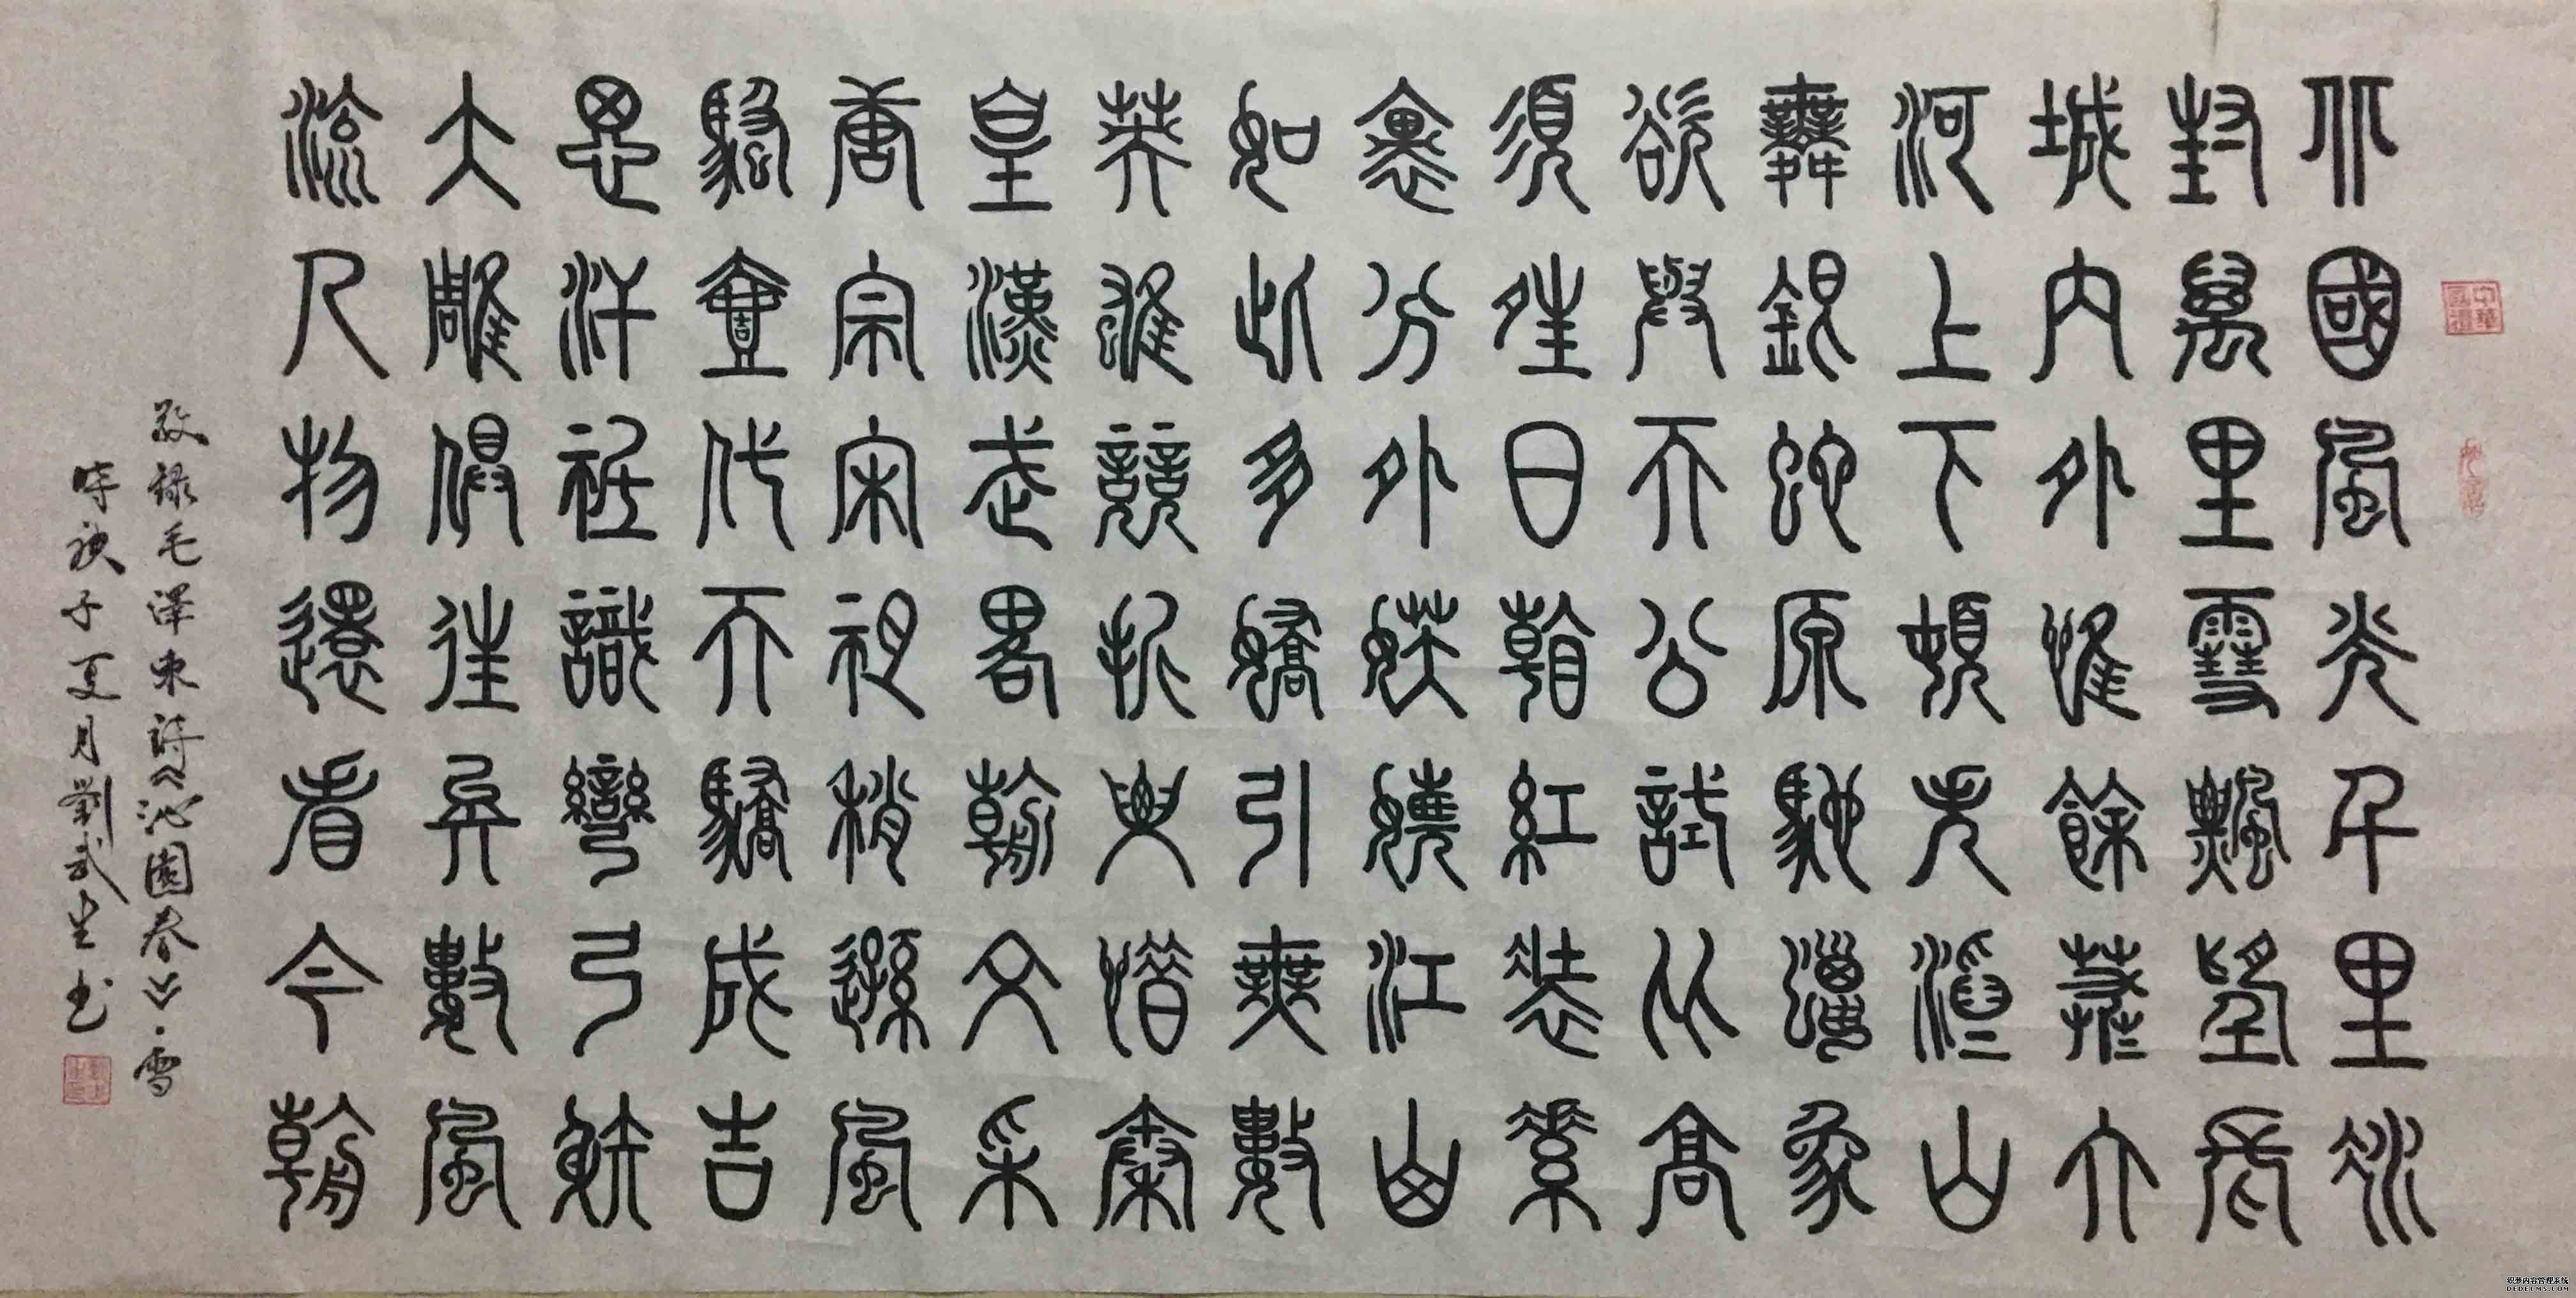 北國風光千里冰
封萬里雪飄望長
城內外惟餘莽〻大
河上下頓失滔〻山
舞銀蛇原馳蠟象
欲與天公試比高
須晴日看紅裝素
裹分外妖嬈江山
如此多嬌引無數
英雄競折腰惜秦
皇漢武略輸文采
唐宗宋祖稍遜風
騷壹代天驕成吉
思汗祇識彎弓射
大雕俱往矣數風
流人物還看今朝
敬録毛澤東詩《沁園春》·雪
時庚子夏月劉武生书
中華國禮
织梦内容管理系统
DEDECMS.COM